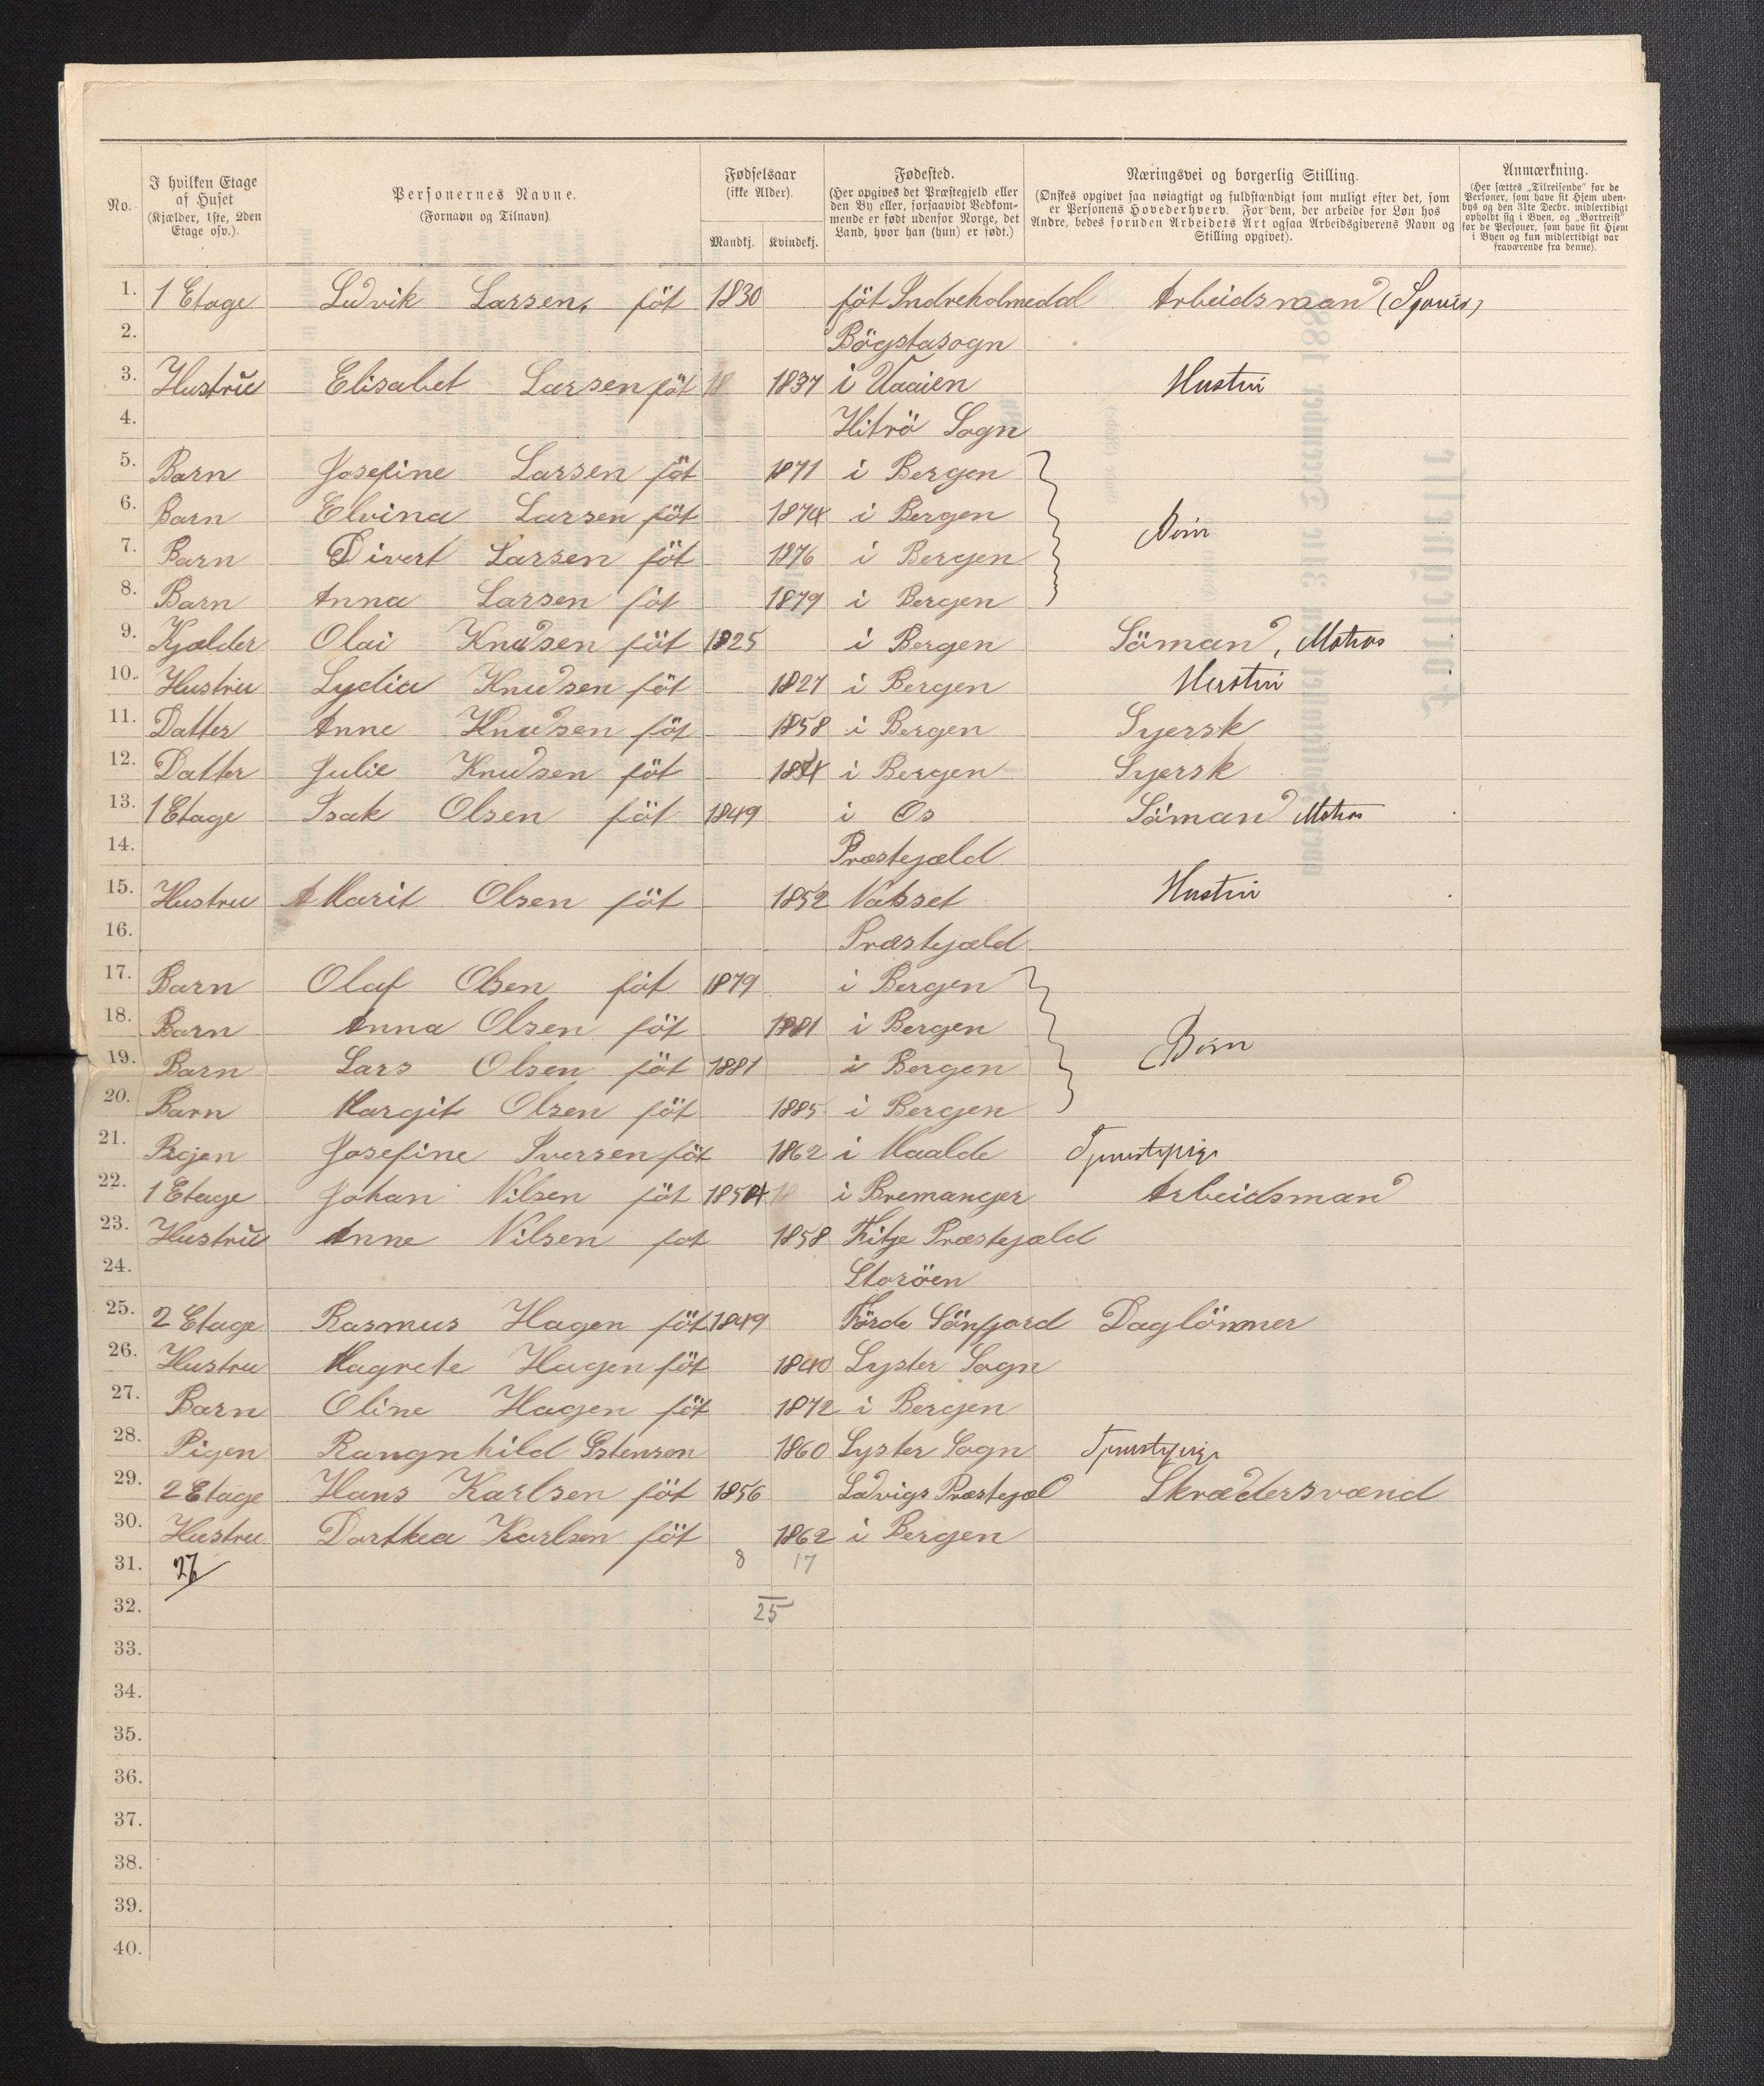 No.
I hvilken Etage af Huset (Kjælder, 1ste, 2den Etage osv.).
Personernes Navne. (Fornavn og Tilnavn).
Fødselsaar (ikke Alder).
Mandkj. Kvindekj.
Fødested. (Her opgives det Præstegjeld eller den By eller, forsaavidt Vedkommende er født udenfor Norge, det Land, hvor han (hun) er født.)
Næringsvei og borgerlig Stilling. (Ønskes opgivet saa nøiagtigt og fuldstændigt som muligt efter det, som er Personens Hovederhverv. For dem, der arbeide for Løn hos Andre, bedes foruden Arbeidets Art ogsaa Arbeidsgiverens Navn og Stilling opgivet).
Anmærkning. (Her sættes „Tilreisende" for de Personer, som have sit Hjem udenbys og den 31te Decbr. midlertidigt opholdt sig i Byen, og „Bortreist" for de Personer, som have sit Hjem i Byen og kun midlertidigt var fraværende fra denne).
1. 1 Etage Ludvik Larsen, föt 1830 föt Indreholmedal Arbeidsman
2. Bögstasogn
3. Hustru Elisabet Larsen föt 18 1837 i Vaaien Hustru
4. Hitrö Sogn
5. Barn Josefine Larsen föt 1871 i Bergen
6. Barn Elvina Larsen föt 1874 i Bergen Børn
7. Barn Divert Larsen föt 1876 i Bergen
8. Barn Anna Larsen föt 1879 i Bergen
9. Kjælder Olai Knudsen föt 1825 i Bergen Söman, Matros
10. Hustru Lydia Knudsen föt 1827 i Bergen Hustru
11. Datter Anne Knudsen föt 1858 i Bergen Syersk
12. Datter Julie Knudsen föt i Bergen Syersk
13. 1 Etage Isak Olsen föt 1849 i Os Söman Matros
14. Præstejæld
15. Hustru Marit Olsen föt 1852 Hustru
16. Præstejæld
17. Barn Olaf Olsen föt 1879 i Bergen
18. Barn Anna Olsen föt 1881 i Bergen Børn
19. Barn Lars Olsen föt 1881 i Bergen
20. Barn Margit Olsen föt 1885 i Bergen
21. Pigen Josefine Iversen föt 1862 i Maalde Tjenestepige
22. 1 Etage Johan Nilsen föt 1854 18 i Bremanger Arbeidsman
23. Hustru Anne Nilsen fot 1858 Fitje Præstejæld
24. Storöen
25. 2 Etage Rasmus Hagen föt 1849 Förde Sönfjord Daglönner
26. Hustru Magrete Hagen föt 1840 Lyster Sogn
27. Barn Oline Hagen föt 1872 i Bergen
28. Pigen Rangnhild Estensen 1860 Lyster Sogn Tjenestepige
29. 2 Etage Hans Karlsen föt 1856 Ladvigs Præstejæl Skrædersvænd
30. Hustru Dorthea Karlsen föt 1862 i Bergen
31. 26 8 17
32. 25
33.
34.
35.
36.
37.
38.
39.
40.